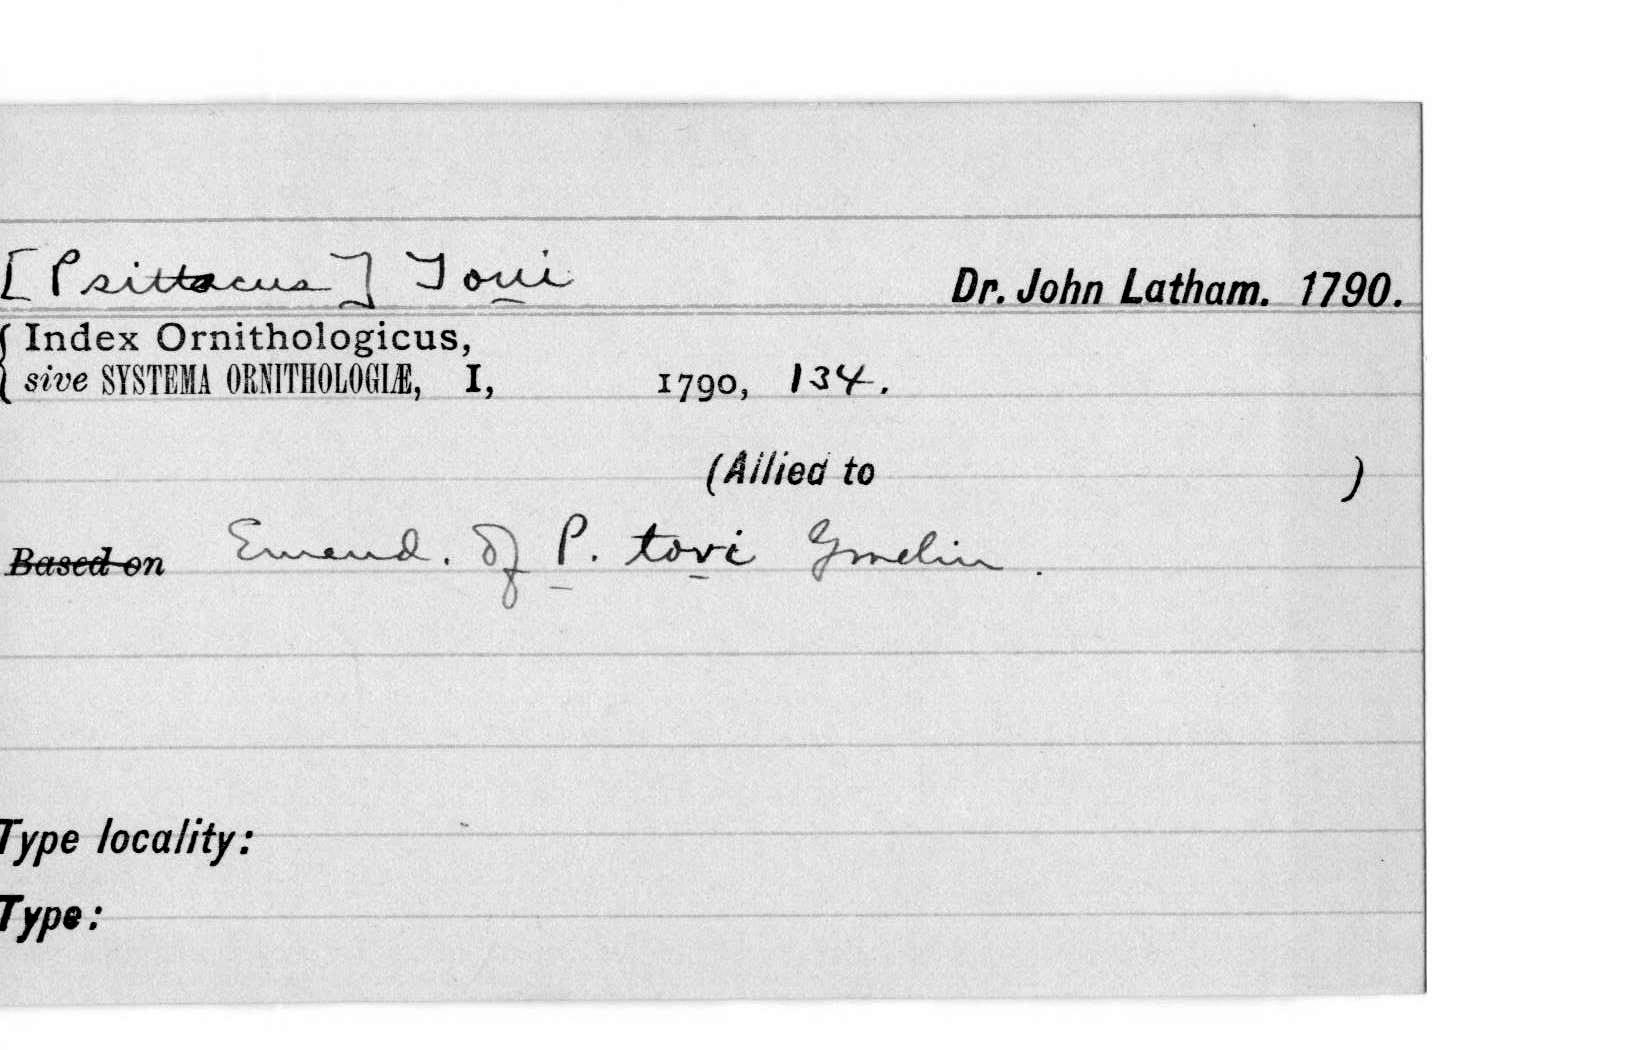 [Psittacus] Toui Dr. John Latham. 1790.
{ Index Ornithologicus,
sive SYSTEMA ORNITHOLOGIÆ, I, 1790, 134.
(Allied to )
Based on Emend. of P. tovi Gmelin.
Type locality:
Type: